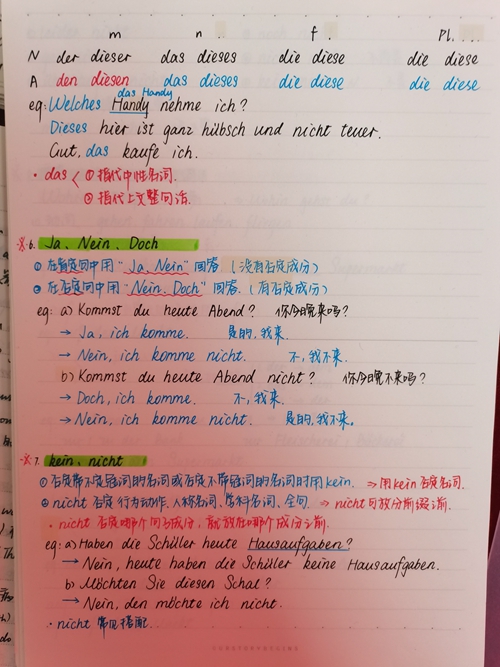 m n. f. Pl.
N der dieser das dieses die diese die diese
A den diesen das dieses die diese die diese
das Handy
eg: Welches Handy nehme ich?
Dieses hier ist ganz hübsch und nicht teuer.
Gut, das kaufe ich.
· das < ① 指代中性名词.
② 指代上文整句话.
※ 6. Ja、Nein、Doch
① 在肯定句中用“Ja、Nein”回答.(没有否定成分)
② 在否定句中用“Nein、Doch”回答.(有否定成分)
eg: a) Kommst du heute Abend? 你今晚来吗?
→ Ja, ich komme. 是的,我来.
→ Nein, ich komme nicht. 不,我不来.
b) Kommst du heute Abend nicht? 你今晚不来吗?
→ Doch, ich komme. 不,我来.
→ Nein, ich komme nicht. 是的,我不来。
※ 7. kein、nicht
① 否定带不定冠词的名词或否定不带冠词的名词时用kein. ⇒ 用kein否定名词.
② nicht 否定行为动作、人称名词、学科名词、全句. ⇒ nicht可放分前缀前.
· nicht 否定哪个句子成分,就放在哪个成分之前.
eg: a) Haben die Schüller heute Hausaufgaben?
→ Nein, heute haben die Schüller keine Hausaufgaben.
b) Möchten Sie diesen Schal?
→ Nein, den möchte ich nicht.
· nicht 常见搭配.